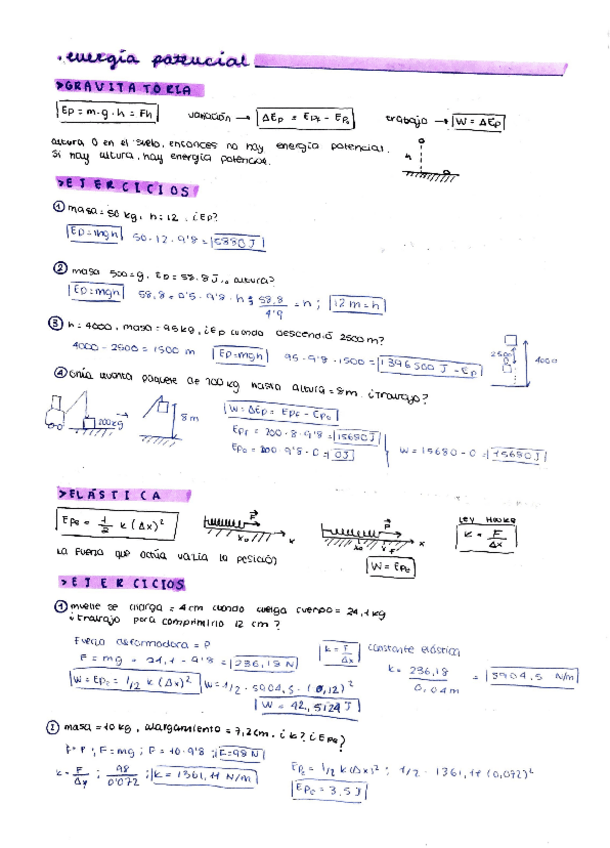 · energía potencial
>GRAVITATORIA
Ep = m·g·h = Fh variación → ΔEp = Epf - Ep₀ trabajo → W = ΔEp
altura 0 en el suelo, entonces no hay energía potencial.
Si hay altura, hay energía potencial.
h
>EJERCICIOS
① masa = 50 kg, h = 12. ¿Ep?
Ep=mgh 50·12·9'8 = 5880 J
② masa 500 g. Ep = 58.8 J, altura?
Ep=mgh 58,8 = 0'5 · 9'8 · h ; 58,8 / 4'9 = h ; 12 m = h
③ h = 4000, masa = 95 kg, ¿Ep cuando descendió 2500 m?
4000 - 2500 = 1500 m Ep=mgh 95 · 9'8 · 1500 = 1396500 J = Ep
2500 4000
④ Grúa levanta paquete de 200 kg hasta altura = 8 m. ¿Trabajo?
200 kg → 8 m
W = ΔEp = Epf - Ep₀
Epf = 200 · 8 · 9'8 = 15680 J
Ep₀ = 200 · 9'8 · 0 = 0 J
W = 15680 - 0 = 15680 J
>ELÁSTICA
Epe = 1/2 k (Δx)² F x₀ x F x₀ xF x LEY HOOKE K = F/Δx
La fuerza que actúa varía la posición W = Epe
>EJERCICIOS
① muelle se alarga = 4 cm cuando cuelga cuerpo = 24,1 kg
¿trabajo para comprimirlo 12 cm?
Fuerza deformadora = P k = F/Δx constante elástica
F = mg = 24,1 · 9'8 = 236,18 N k = 236,18 / 0,04 m = 5904,5 N/m
W = Epe = 1/2 k (Δx)² W = 1/2 · 5904,5 · (0,12)²
W = 42,5124 J
② masa = 10 kg, alargamiento = 7,2 cm. ¿k? ¿Epe?
F = P ; F = mg ; P = 10 · 9'8 ; F = 98 N
k = F/Δy ; 98/0'072 ; k = 1361,11 N/m
Epe = 1/2 k (Δx)² ; 1/2 · 1361,11 (0,072)²
Epe = 3,5 J